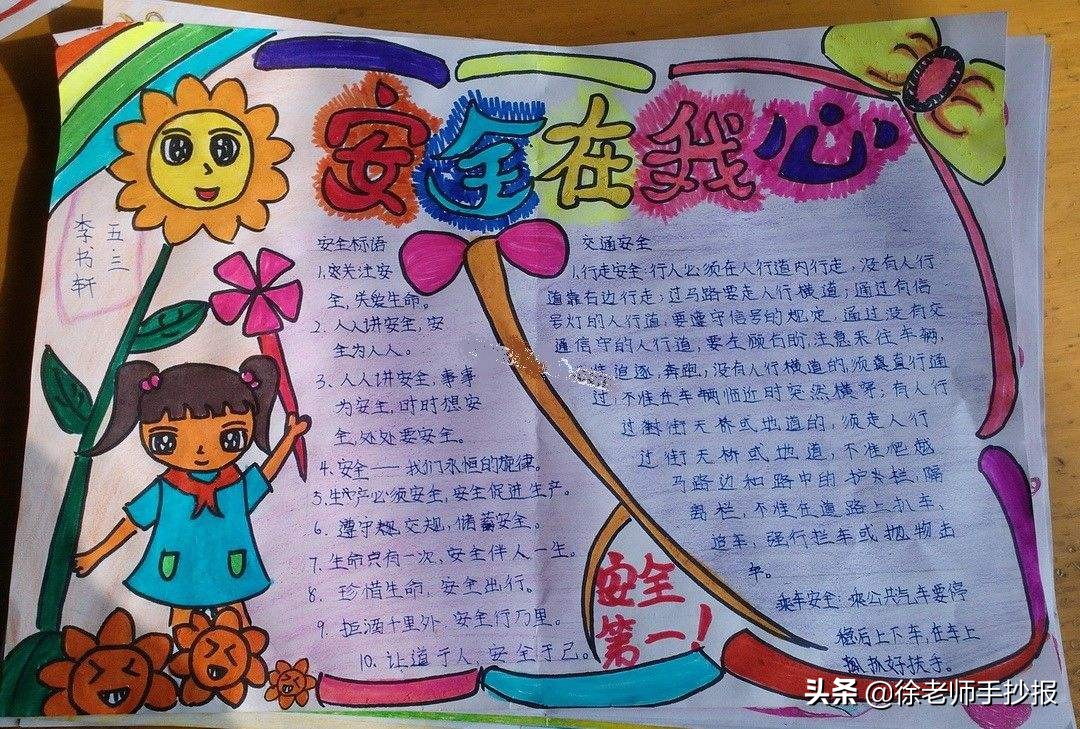 安全在我心
五·三
李书轩
安全标语
1.突关注安
全,关爱生命。
2. 人人讲安全,安
全为人人。
3. 人人讲安全,事事
为安全,时时想安
全,处处要安全。
4. 安全——我们永恒的旋律。
5.生产必须安全,安全促进生产。
6. 遵守交规,储蓄安全。
7. 生命只有一次,安全伴人一生。
8. 珍惜生命,安全出行。
9. 拒酒千里外,安全行万里。
10. 让道于人,安全于己。
交通安全
1.行走安全:行人必须在人行道内行走,没有人行
道靠右边行走;过马路要走人行横道;通过有信
号灯的人行道,要遵守信号的规定,通过没有交
通信守的人行道,要左顾右盼,注意来往车辆,
追逐,奔跑,没有人行横道的,须直行通
过,不准在车辆临近时突然横穿;有人行
过街天桥或地道的,须走人行
过街天桥或地道,不准爬越
马路边和路中的护栏,隔
离栏,不准在道路上扒车、
追车、强行拦车或抛物击
车。
乘车安全:乘公共汽车要停
稳后上下车,在车上
好扶手。
安全
第一!
头条 @徐老师手抄报